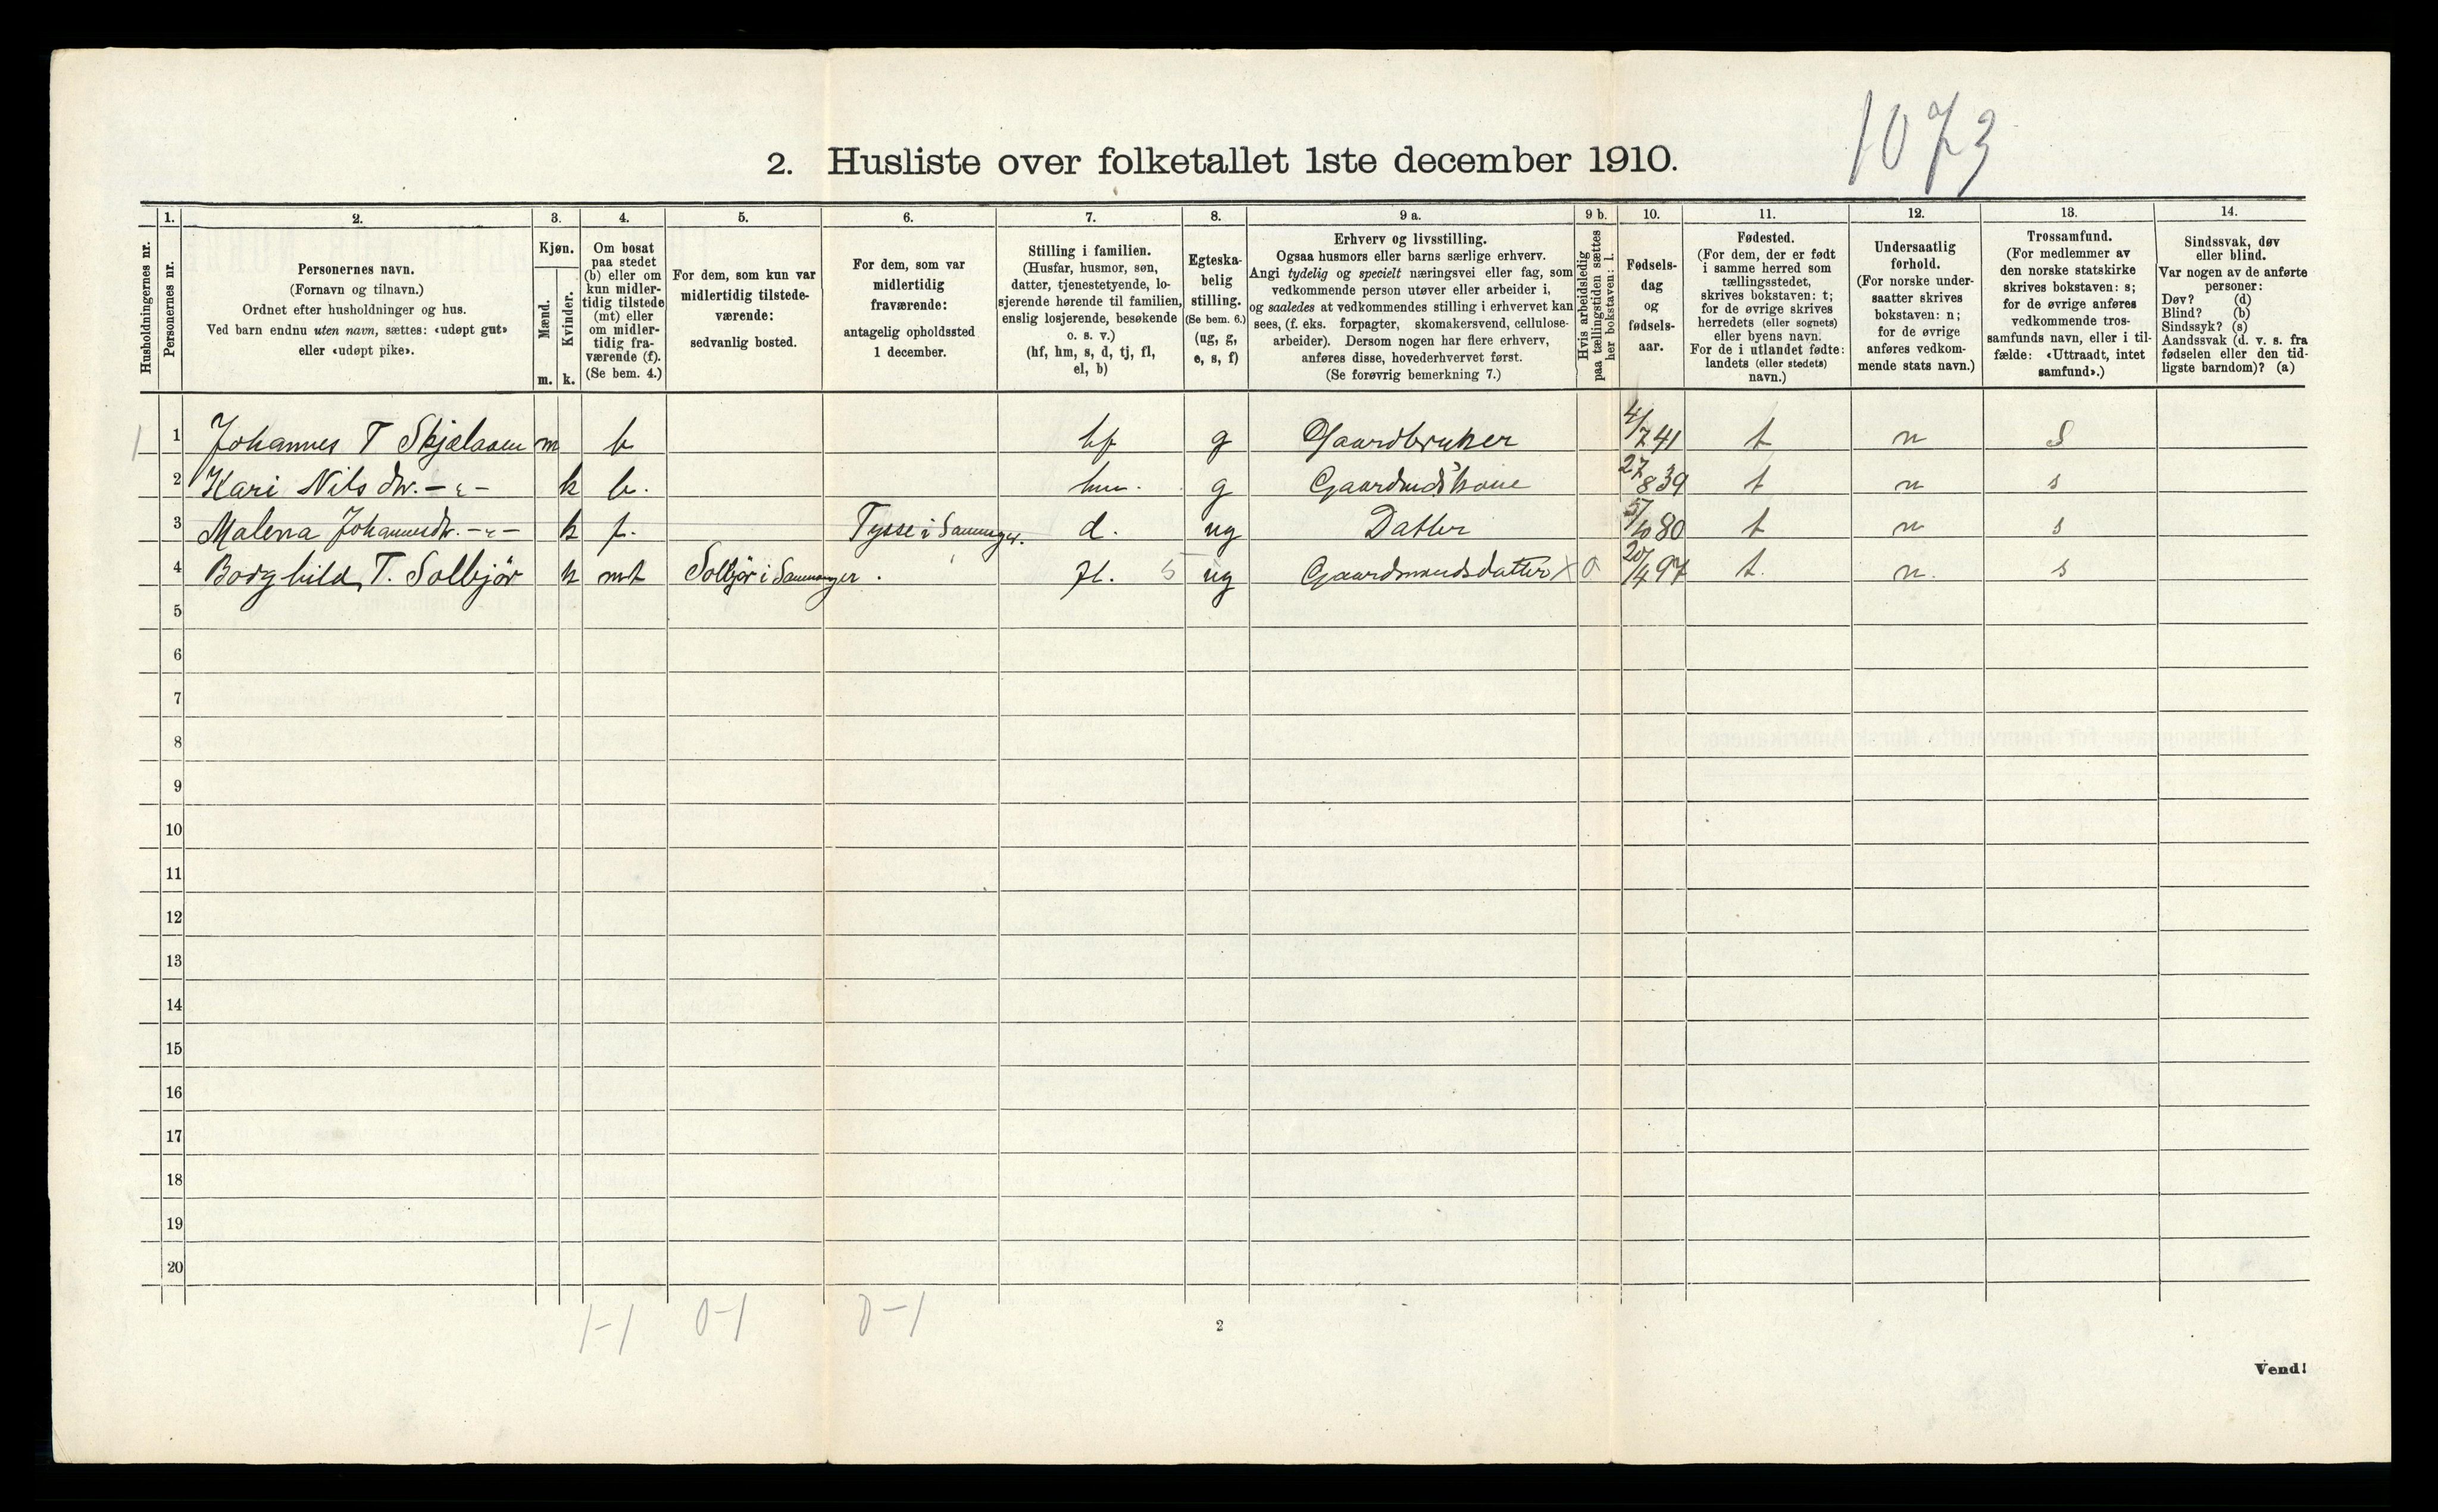 1073
2. Husliste over folketallet 1ste december 1910.
Husholdningernes nr.
1.
Personernes nr.
2.
Personernes navn.
(Fornavn og tilnavn.)
Ordnet efter husholdninger og hus.
Ved barn endnu uten navn, sættes: «udøpt gut»
eller «udøpt pike».
3.
Kjøn.
Mænd.
Kvinder.
m. k.
4.
Om bosat
paa stedet
(b) eller om
kun midler-
tidig tilstede
(mt) eller
om midler-
tidig fra-
værende (f).
(Se bem. 4.)
5.
For dem, som kun var
midlertidig tilstede-
værende:
sedvanlig bosted.
6.
For dem, som var
midlertidig
fraværende:
antagelig opholdssted
1 december.
7.
Stilling i familien.
(Husfar, husmor, søn,
datter, tjenestetyende, lo-
sjerende hørende til familien,
enslig losjerende, besøkende
o. s. v.)
(hf, hm, s, d, tj, fl,
el, b)
8.
Egteska-
belig
stilling.
(Se bem. 6.)
(ug, g,
e, s, f)
9 a.
Erhverv og livsstilling.
Ogsaa husmors eller barns særlige erhverv.
Angi tydelig og specielt næringsvei eller fag, som
vedkommende person utøver eller arbeider i,
og saaledes at vedkommendes stilling i erhvervet kan
sees, (f. eks. forpagter, skomakersvend, cellulose-
arbeider). Dersom nogen har flere erhverv,
anføres disse, hovederhvervet først.
(Se forøvrig bemerkning 7.)
9 b.
Hvis arbeidsledig
paa tællingstiden sættes
her bokstaven: l.
10.
Fødsels-
dag
og
fødsels-
aar.
11.
Fødested.
(For dem, der er født
i samme herred som
tællingsstedet,
skrives bokstaven: t;
for de øvrige skrives
herredets (eller sognets)
eller byens navn.
For de i utlandet fødte:
landets (eller stedets)
navn.)
12.
Undersaatlig
forhold.
(For norske under-
saatter skrives
bokstaven: n;
for de øvrige
anføres vedkom-
mende stats navn.)
13.
Trossamfund.
(For medlemmer av
den norske statskirke
skrives bokstaven: s;
for de øvrige anføres
vedkommende tros-
samfunds navn, eller i til-
fælde: «Uttraadt, intet
samfund».)
14.
Sindssvak, døv
eller blind.
Var nogen av de anførte
personer:
Døv? (d)
Blind? (b)
Sindssyk? (s)
Aandssvak (d. v. s. fra
fødselen eller den tid-
ligste barndom)? (a)
1 1 Johannes T Skjælaaen m b hf g Gaardbruker 4/7 41 t n S
2 Kari Nils dtr. -"- k b. hm. g Gaardmdskone 27/8 39 t n s
3 Malena Johannesdtr. -"- k f. Tysse i Samnanger. d. ug Datter 5/10 80 t n s
4 Borghild T. Solbjør k mt Solbjør i Samnanger. fl. 5 ug Gaardmandsdatter x 0 20/4 97 t. n. s
5
6
7
8
9
10
11
12
13
14
15
16
17
18
19
20
1-1 0-1 0-1
2
Vend!